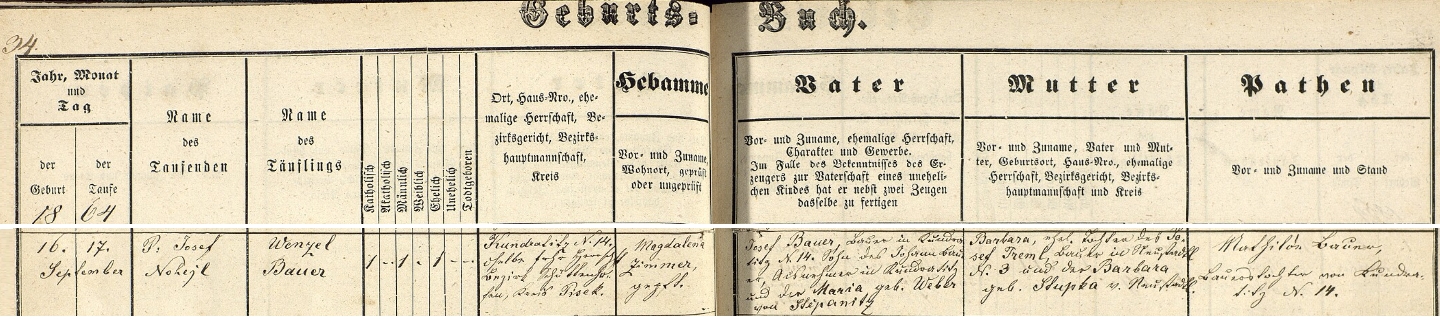 Geburts-Buch.
34.
Jahr, Monat
und
Tag
der
Geburt
der
Taufe
1864
Name
des
Taufenden
Name
des
Täuflings
Katholisch
Akatholisch
Männlich
Weiblich
Ehelich
Unehelich
Todtgeboren
Ort, Haus-Nro., ehe-
malige Herrschaft, Be-
zirksgericht, Bezirks-
hauptmannschaft,
Kreis
Hebamme
Vor- und Zuname,
Wohnort, geprüft
oder ungeprüft
Vater
Vor- und Zuname, ehemalige Herrschaft,
Charakter und Gewerbe.
Im Falle des Bekenntnisses des Er-
zeugers zur Vaterschaft eines uneheli-
chen Kindes hat er nebst zwei Zeugen
dasselbe zu fertigen
Mutter
Vor- und Zuname, Vater und Mut-
ter, Geburtsort, Haus-Nro., ehemalige
Herrschaft, Bezirksgericht, Bezirks-
hauptmannschaft und Kreis
Pathen
Vor- und Zuname und Stand
16. 17.
September
P. Josef
Nohejl
Wenzel
Bauer
1 - - 1 - 1 - -
Kundratitz N. 14.
Bezirk Schüttenho-
fen, Kreis Pisek.
Magdalena
Zimmer,
gepft.
Josef Bauer, Bauer in Kundra-
titz N. 14. Sohn des Johann Bau-
er, Ausnehmer in Kundratitz
und der Maria geb. Weber
von Stěpanitz
Barbara, ehel. Tochter des Jo-
sef Treml, Bauer in Neustadl
N. 3 und der Barbara
geb. Stupka v. Neustadl.
Mathilde Bauer,
Bauerstochter von Kundra-
titz N. 14.